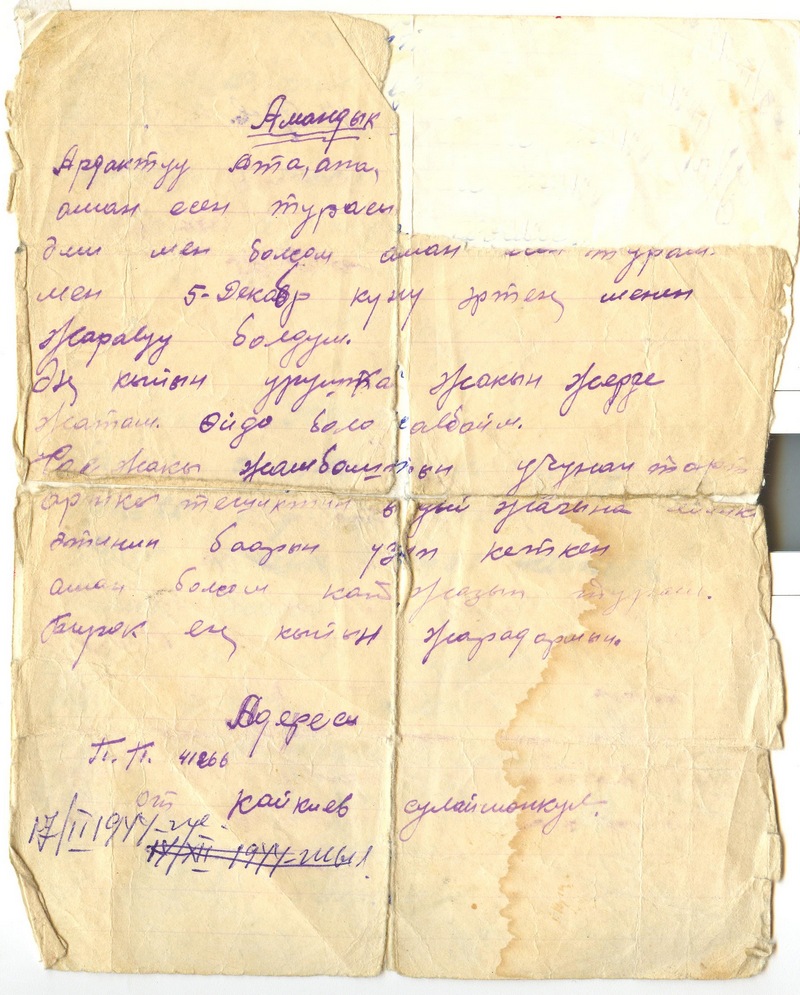 Амандык
Ардактуу Ата, апа,
аман есен турасы
Эми мен болсом аман турам.
мен 5-Декабр куну эртең менен
Жаралуу болдум.
Эң кыйын урушка жакын жерде
жатам. Өйдө боло албайм.
жамбоштын учунан
аркы тешиктин жагына
этинин баарын узуп кеткен
аман болсом кат жазып турам.
Бирок ең кыйын жарадармын.
Адереси
П.П. 41266
от Кайкиев Сулайманкул.
17/II 1944-
17/XII 1944-жыл